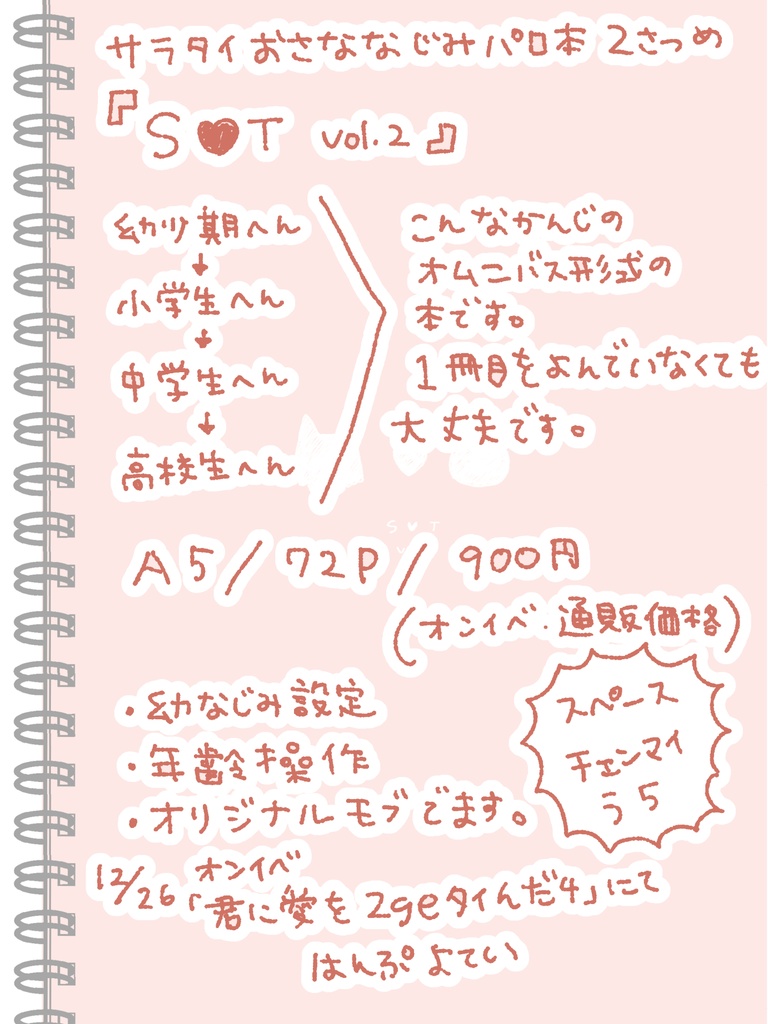 サラタイおさななじみパロ本 2さつめ
『S♥T vol.2』
幼少期へん
↓
小学生へん
↓
中学生へん
↓
高校生へん
こんなかんじの
オムニバス形式の
本です。
1冊目をよんでいなくても
大丈夫です。
S♥T
A5/72P/900円
(オンイベ・通販価格)
・幼なじみ設定
・年齢操作
・オリジナルモブでます。
スペース
チェンマイ
う5
12/26 オンイベ
「君に愛を2geタイんだ4」にて
はんぷよてい